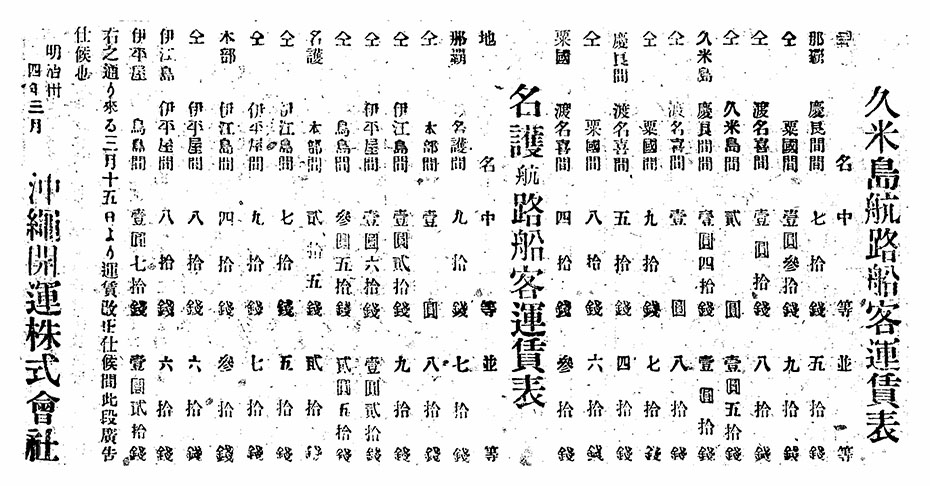 久米島航路船客運賃表
地名 中等 並等
那覇 慶良間間 七拾錢 五拾錢
仝 粟國間 壹圓參拾錢 九拾錢
仝 渡名喜間 壹圓拾錢 八拾錢
仝 久米島間 貳圓 壹圓五拾錢
久米島 慶良間間 壹圓四拾錢 壹圓拾錢
仝 渡名喜間 壹圓 八拾錢
仝 粟國間 九拾錢 七拾錢
慶良間 渡名喜間 五拾錢 四拾錢
仝 粟國間 八拾錢 六拾錢
粟國 渡名喜間 四拾錢 參拾錢
名護航路船客運賃表
地名 中等 並等
那覇 名護間 九拾錢 七拾錢
仝 本部間 壹圓 八拾錢
仝 伊江島間 壹圓貳拾錢 九拾錢
仝 伊平屋間 壹圓六拾錢 壹圓貳拾錢
仝 鳥島間 參圓五拾錢 貳圓五拾錢
名護 本部間 貳拾五錢 貳拾錢
仝 伊江島間 七拾錢 五拾錢
仝 伊平屋間 九拾錢 七拾錢
本部 伊江島間 四拾錢 參拾錢
仝 伊平屋間 八拾錢 六拾錢
伊江島 伊平屋間 八拾錢 六拾錢
伊平屋 鳥島間 壹圓七拾錢 壹圓貳拾錢
右之通り來る三月十五日より運賃改正仕候間此段廣告
仕候也
明治卅四年三月
沖繩開運株式會社